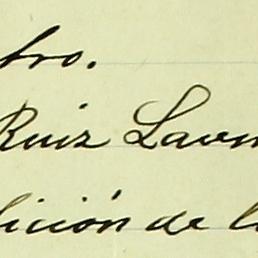 tro.
Ruiz Lavm
dición de l